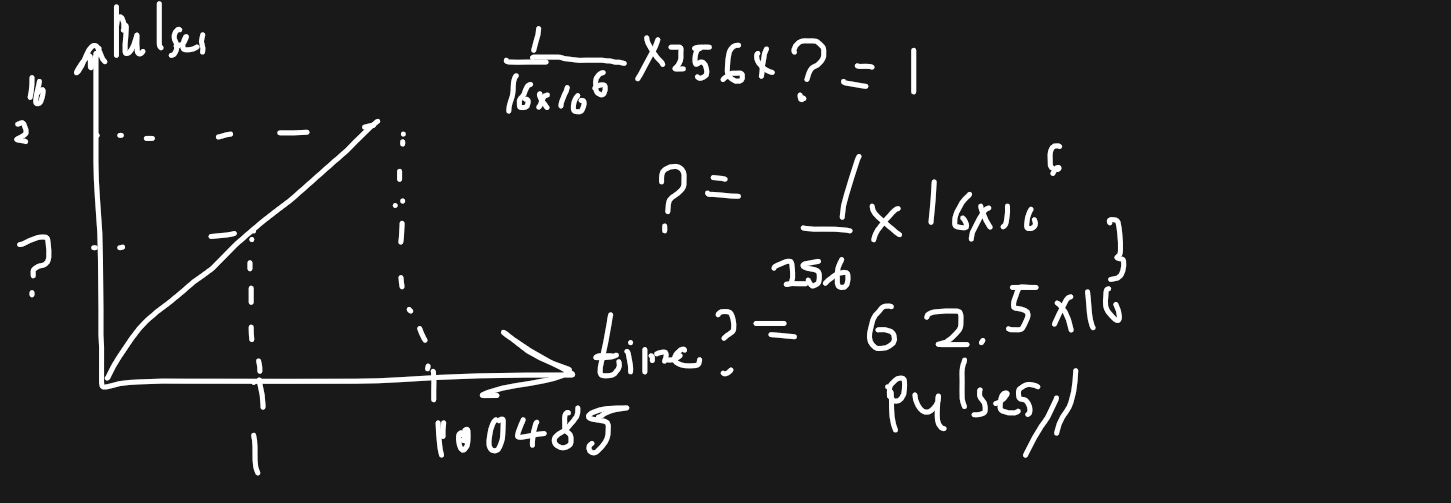 Pulses
2^16
?
1
1.00485
time
1/(16×10^6) ×256× ? = 1
? = 1/256 × 16×10^6
? = 62.5×10^3
Pulses//